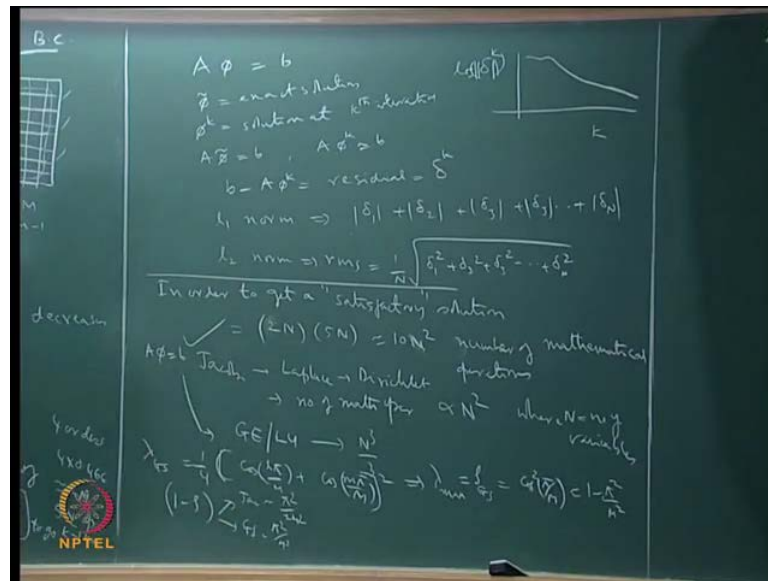 B.C.
M
n-1
decreases
4 orders
4x0.466
to go
NPTEL
A φ = b
φ̃ = exact solution
φ^k = solution at k^th iteration
A φ̃ = b , A φ^k ≈ b
b - A φ^k = residual = δ^k
l₁ norm ⇒ |δ₁| + |δ₂| + |δ₃| + |δ₃| ... + |δ_N|
l₂ norm ⇒ rms = 1/N √(δ₁² + δ₂² + δ₃² - ... + δ_n²)
k
In order to get a "satisfactory" solution
= (2N) (5N) ≈ 10N² number of mathematical
Aφ=b Jacobi → Laplace → Dirichlet operations
→ no of math oper ∝ N² where N = no of
variables
→ GE/LU → N³/3
λ_GS = 1/4 ( cos( π/M) + cos(mπ/M))² ⇒ λ = ρ_GS = cos²(π/M) = 1 - π²/M²
(1-ρ) Jac - π²
GS - π²